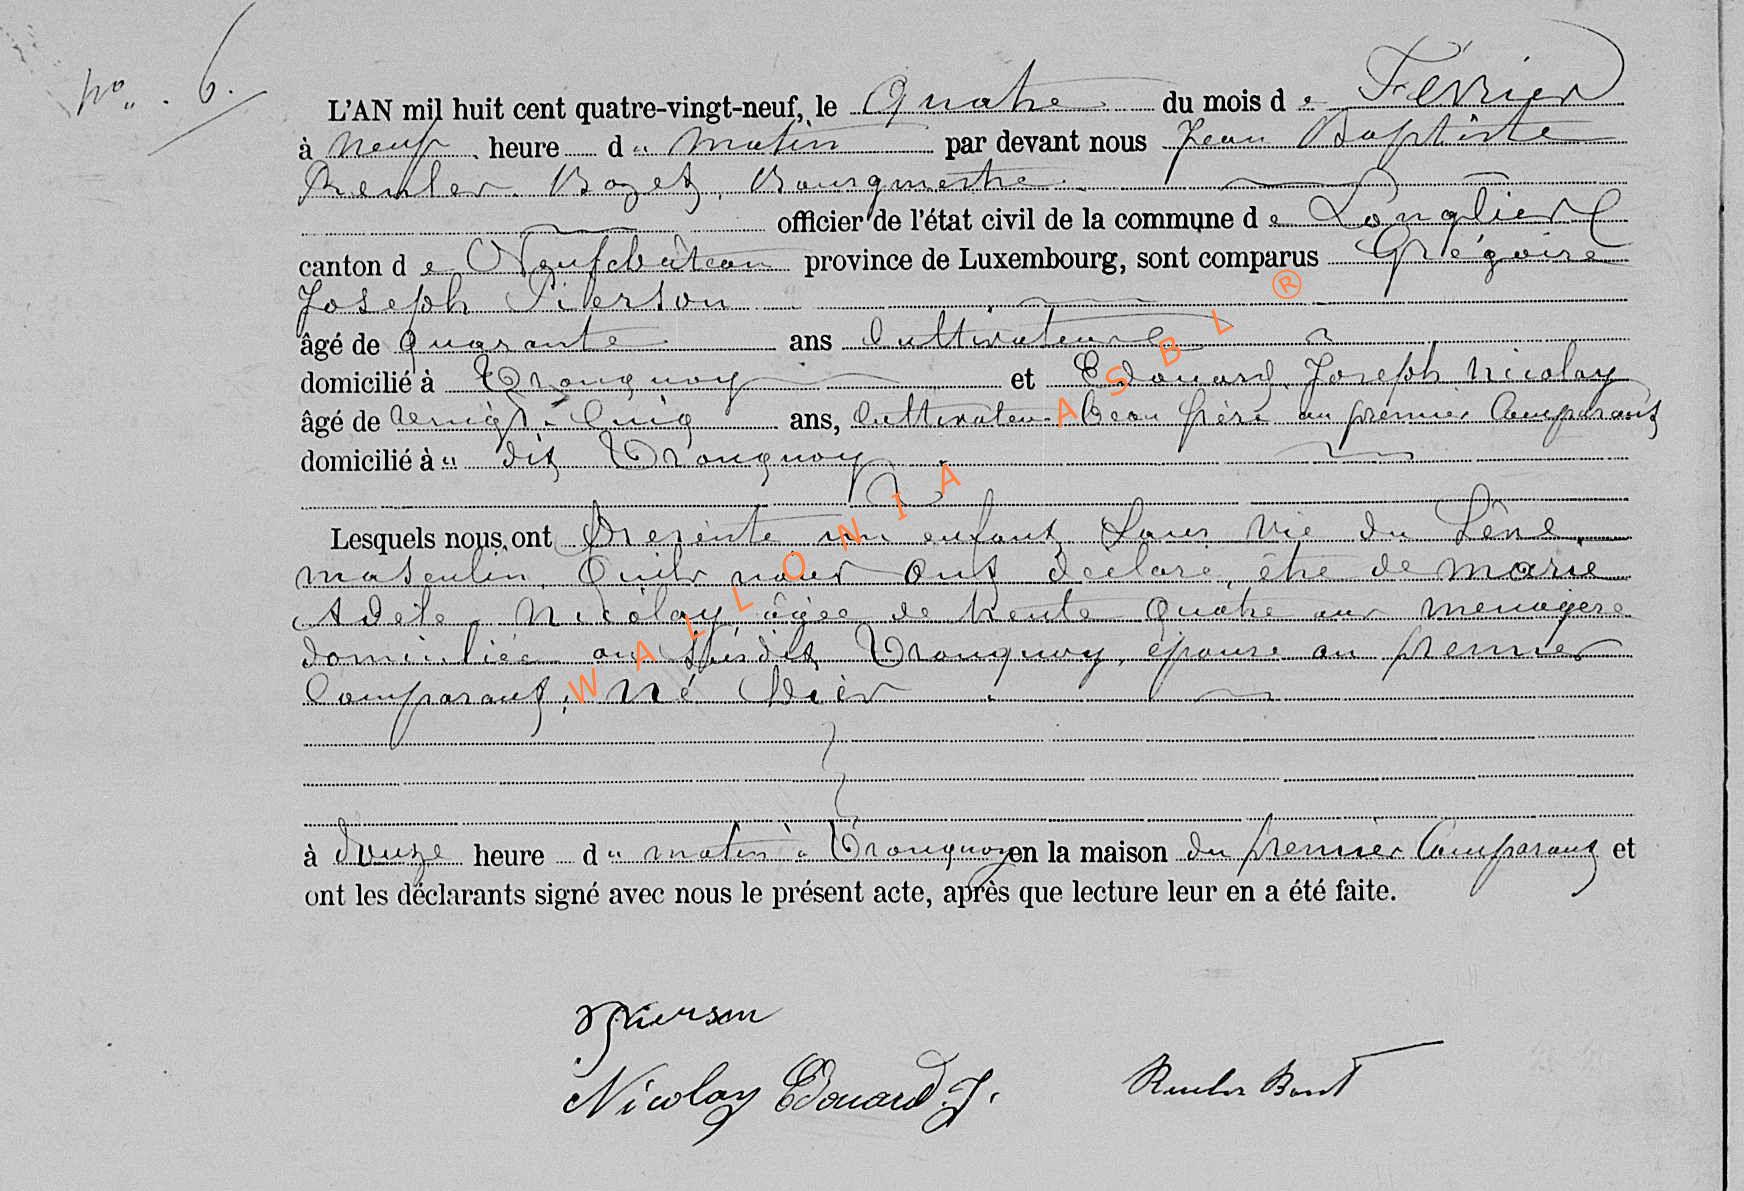 No. 6.
L'AN mil huit cent quatre-vingt-neuf, le Quatre du mois de Février
à neuf heure du matin par devant nous Jean Baptiste
Renler Bozet, Bourgmestre
officier de l'état civil de la commune de Longlier
canton de Neufchâteau province de Luxembourg, sont comparus Grégoire
Joseph Pierson
âgé de quarante ans Cultivateur
domicilié à Tronquoy et Edouard Joseph Nicolay
âgé de vingt-Cinq ans, Cultivateur Beau frère au premier Comparant
domicilié au dit Tronquoy
Lesquels nous ont Presenté un enfant Sans Vie du Séxe
masculin, Quils nous Ont declaré, être de Marie
Adèle Nicolay âgée de trente Quatre ans menagere
domiciliée au susdit Tronquoy, épouse au premier
Comparant, Né hier
à douze heure du matin à Tronquoy en la maison du premier Comparant et
ont les déclarants signé avec nous le présent acte, après que lecture leur en a été faite.
Pierson
Nicolay Edouard J.
WALLONIA ASBL ®